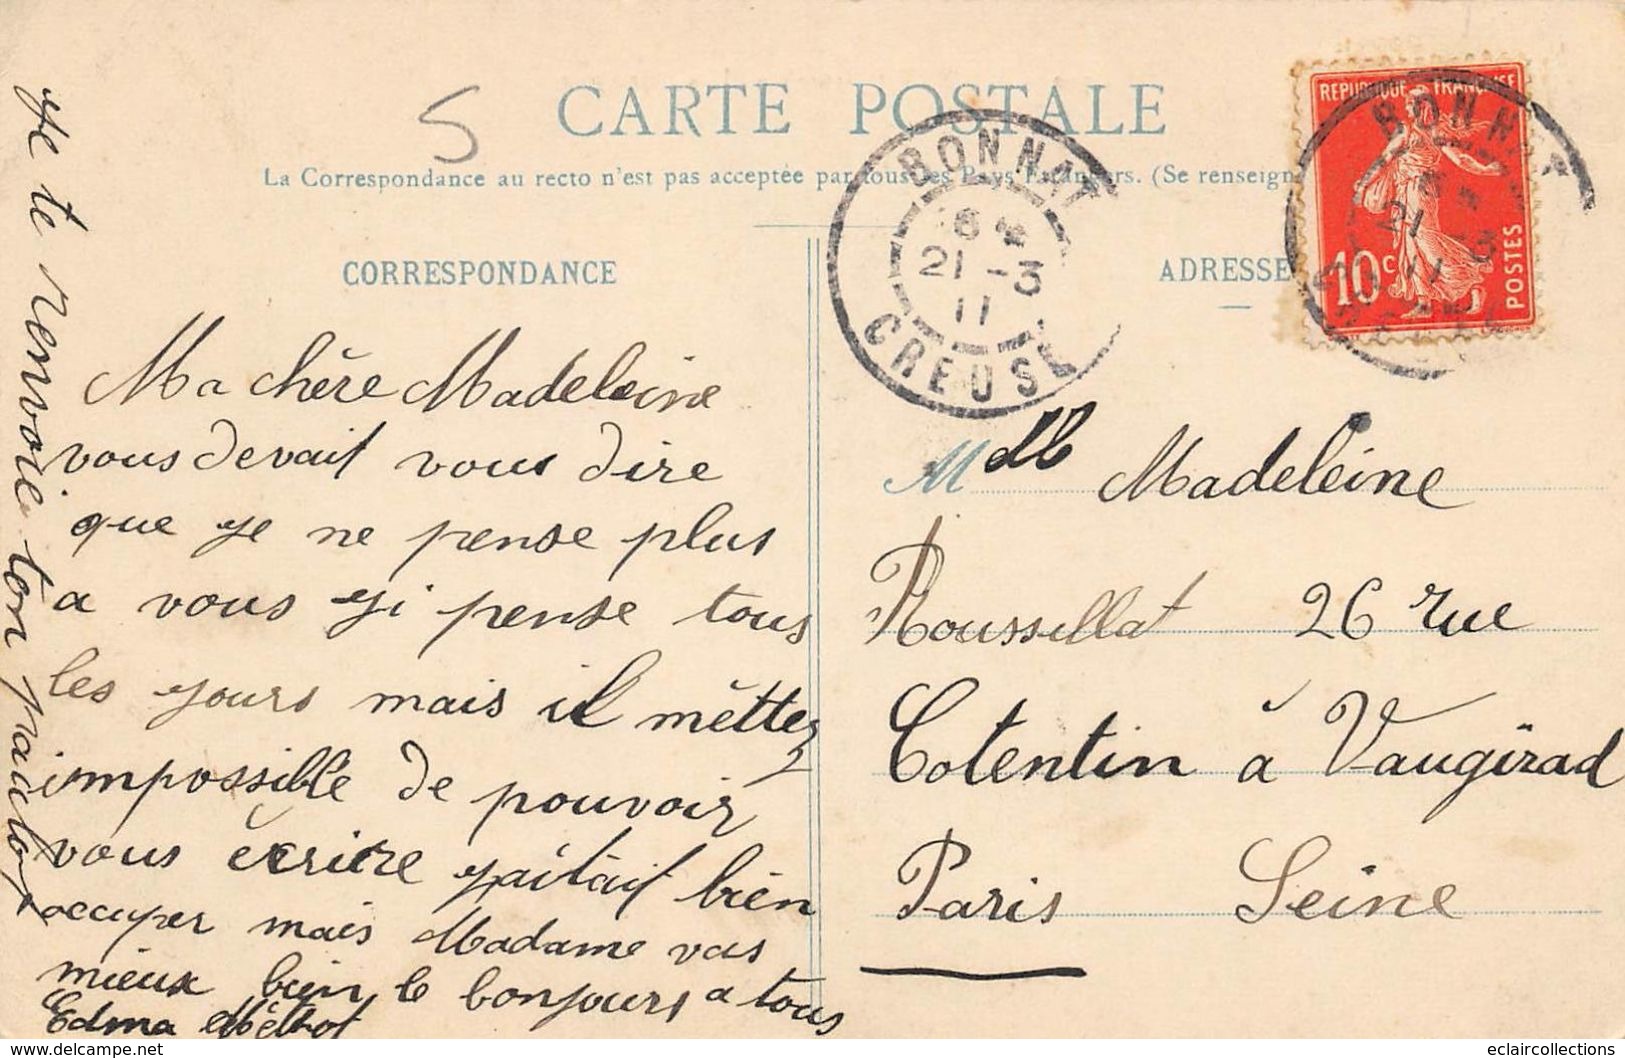 CARTE POSTALE
La Correspondance au recto n'est pas acceptée par tous les Pays Etrangers. (Se renseign
CORRESPONDANCE
ADRESSE
5
REPUBLIQUE FRANÇAISE
10c
POSTES
BONNAT
6
21 -3
11
CREUSE
BONNAT
21 -3
11
Ma chère Madeleine
vous devait vous dire
que je ne pense plus
a vous ji pense tous
les jours mais il mèttez
impossible de pouvoir
vous écrire jaitait bien
occuper mais Madame vas
mieux bien le bonjours a tous
Edma
Je te renvoie ton
Mlle Madeleine
Roussillat 26 rue
Cotentin à Vaugirad
Paris Seine
www.delcampe.net
eclaircollections